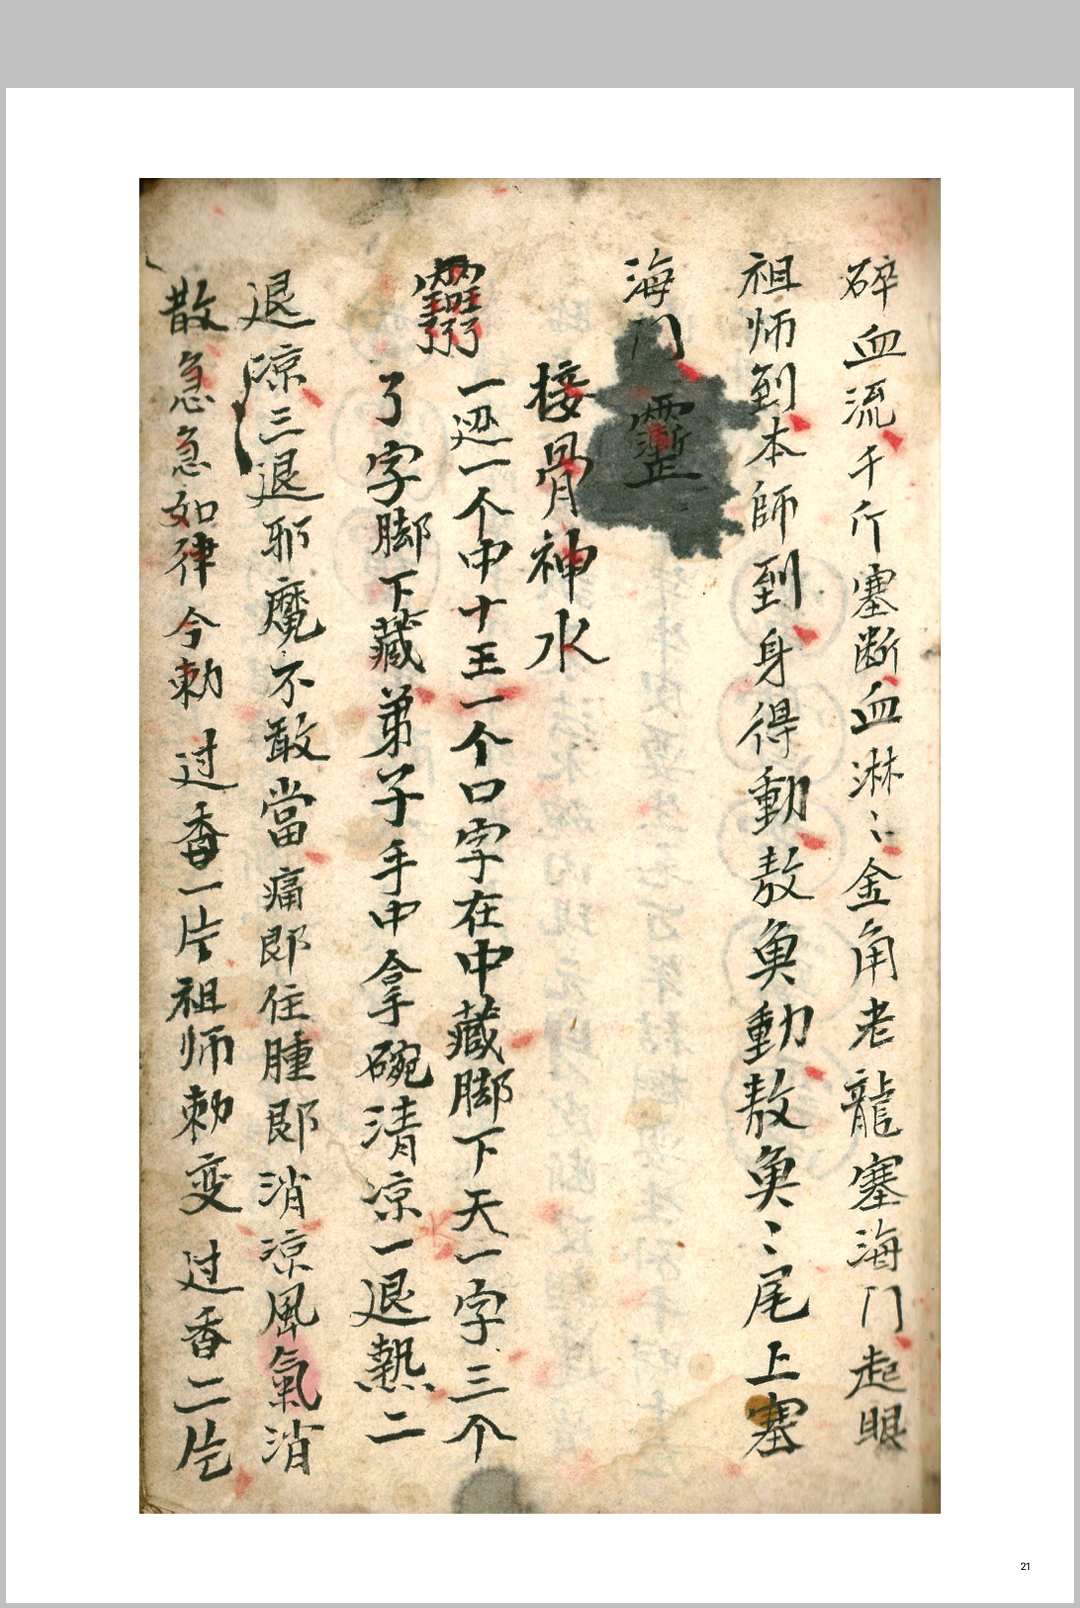 碎血流千斤塞断血淋〻金角老龍塞海门起眼
祖师到本師到身得動敖魚動敖魚〻尾上塞
海门
接骨神水
一边一个中十王一个口字在中藏脚下天一字三个
了字脚下藏弟子手中拿碗清凉一退熱二
退凉三退邪魔不敢當痛即住腫即消凉風氣消
散急急如律令勅过香一片祖师勅变过香二片
21